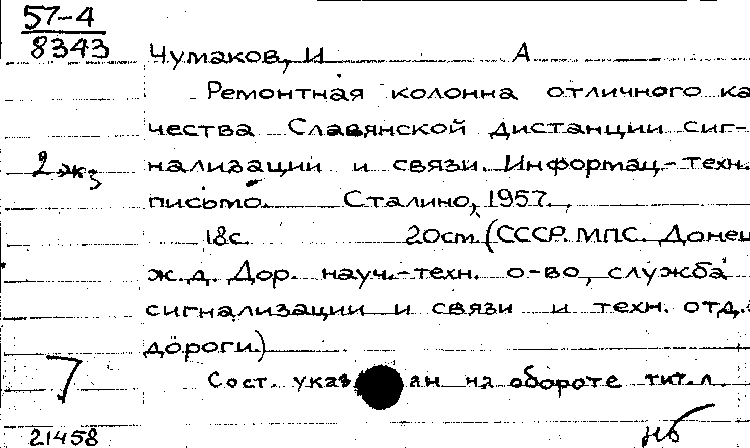 57-4
8343
Чумаков, И А
Ремонтная колонна отличного ка
чества Славянской дистанции сиг-
2 экз
нализации и связи. Информац.-техн.
письмо. Сталино, 1957.
18с. 20см. (СССР. МПС. Донец
ж.д. Дор. науч.-техн. о-во, служба
сигнализации и связи и техн. отд.
дороги.)
7
Сост. указ ан на обороте тит.л.
21458
нб